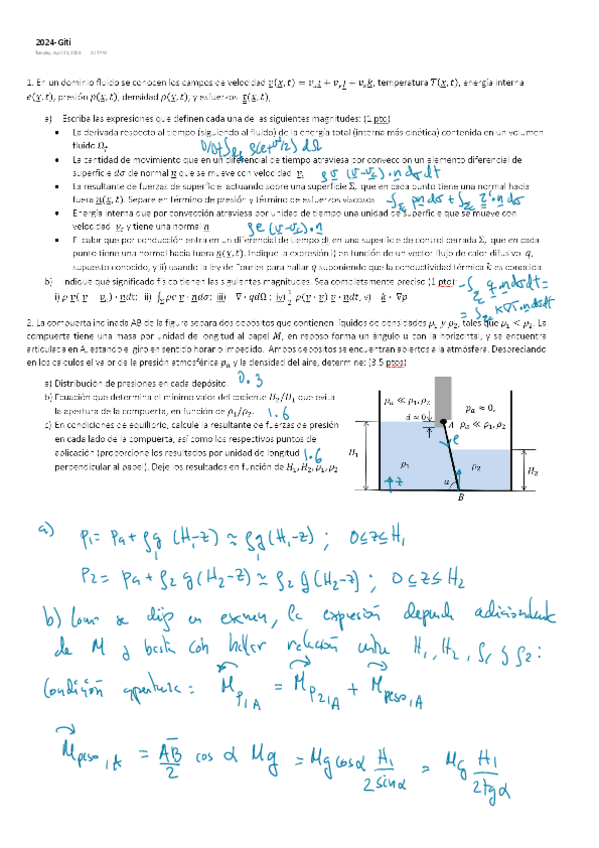 2024-Giti
1. En un dominio fluido se conocen los campos de velocidad v(x, t) = vₓi + vᵧj + v_z k, temperatura T(x, t), energía interna
e(x, t), presión p(x, t), densidad ρ(x, t), y esfuerzos τ(x, t),
a) Escriba las expresiones que definen cada una de las siguientes magnitudes: (1 pto)
• La derivada respecto al tiempo (siguiendo al fluido) de la energía total (interna más cinética) contenida en un volumen
fluido Ω_f D/Dt∫ ρ(e+v²/2) dΩ
• La cantidad de movimiento que en un diferencial de tiempo atraviesa por convección un elemento diferencial de
superficie dσ de normal n que se mueve con velocidad v_c ρv (v-v_c)·n dσ dt
• La resultante de fuerzas de superficie actuando sobre una superficie Σ_c que en cada punto tiene una normal hacia
fuera n(x, t). Separe en término de presión y término de esfuerzos viscosos -∫ pn dσ + ∫ τ'·n dσ
• Energía interna que por convección atraviesa por unidad de tiempo una unidad de superficie que se mueve con
velocidad v_c y tiene una normal n ρe (v-v_c)·n
• El calor que por conducción entra en un diferencial de tiempo dt en una superficie de control cerrada Σ_c que en cada
punto tiene una normal hacia fuera n(x, t). Indique la expresión i) en función de un vector flujo de calor difusivo q,
supuesto conocido, y ii) usando la ley de Fourier para hallar q suponiendo que la conductividad térmica k es conocida
b) Indique qué significado físico tienen las siguientes magnitudes. Sea completamente preciso (1 pto) -∫ q·n dσ dt =
i) ρ v( v − v_c) · ndt; ii) ∫ ρe v · n dσ; iii) ∇ · q dΩ; iv) ½ ρ(v · v) v · n dt, v) k · ∇p = ∫ K∇T·n dσ dt
2. La compuerta inclinada AB de la figura separa dos depósitos que contienen líquidos de densidades ρ₁ y ρ₂, tales que ρ₁ < ρ₂. La
compuerta tiene una masa por unidad de longitud al papel M, en reposo forma un ángulo α con la horizontal, y se encuentra
articulada en A, estando el giro en sentido horario impedido. Ambos depósitos se encuentran abiertos a la atmósfera. Despreciando
en los cálculos el valor de la presión atmosférica pₐ y la densidad del aire, determine: (3.5 ptos)
a) Distribución de presiones en cada depósito. 0.3
b) Ecuación que determina el mínimo valor del cociente H₂/H₁ que evita
la apertura de la compuerta, en función de ρ₁/ρ₂. 1.6
c) En condiciones de equilibrio, calcule la resultante de fuerzas de presión
en cada lado de la compuerta, así como los respectivos puntos de
aplicación (proporcione los resultados por unidad de longitud 1.6
perpendicular al papel). Deje los resultados en función de H₁, H₂, ρ₁, ρ₂
ρₐ ≪ ρ₁, ρ₂
pₐ ≈ 0,
d ≈ 0
A ρₐ ≪ ρ₁, ρ₂
e
H₁
ρ₁
ρ₂
H₂
z
α
B
a) p₁ = pa + ρ₁g (H₁-z) ≃ ρ₁g(H₁-z) ; 0≤z≤H₁
p₂ = pa + ρ₂ g (H₂-z) ≃ ρ₂ g (H₂-z) ; 0≤z≤H₂
b) Como se dijo en examen, la expresión depende adicionalmente
de M y basta con hallar relación entre H₁, H₂, ρ₁ y ρ₂:
Condición apertura: M p₁,A = M p₂,A + M peso,A
M peso,A = AB/2 cos α Mg = Mg cosα H₁/2 sinα = Mg H₁/2tgα